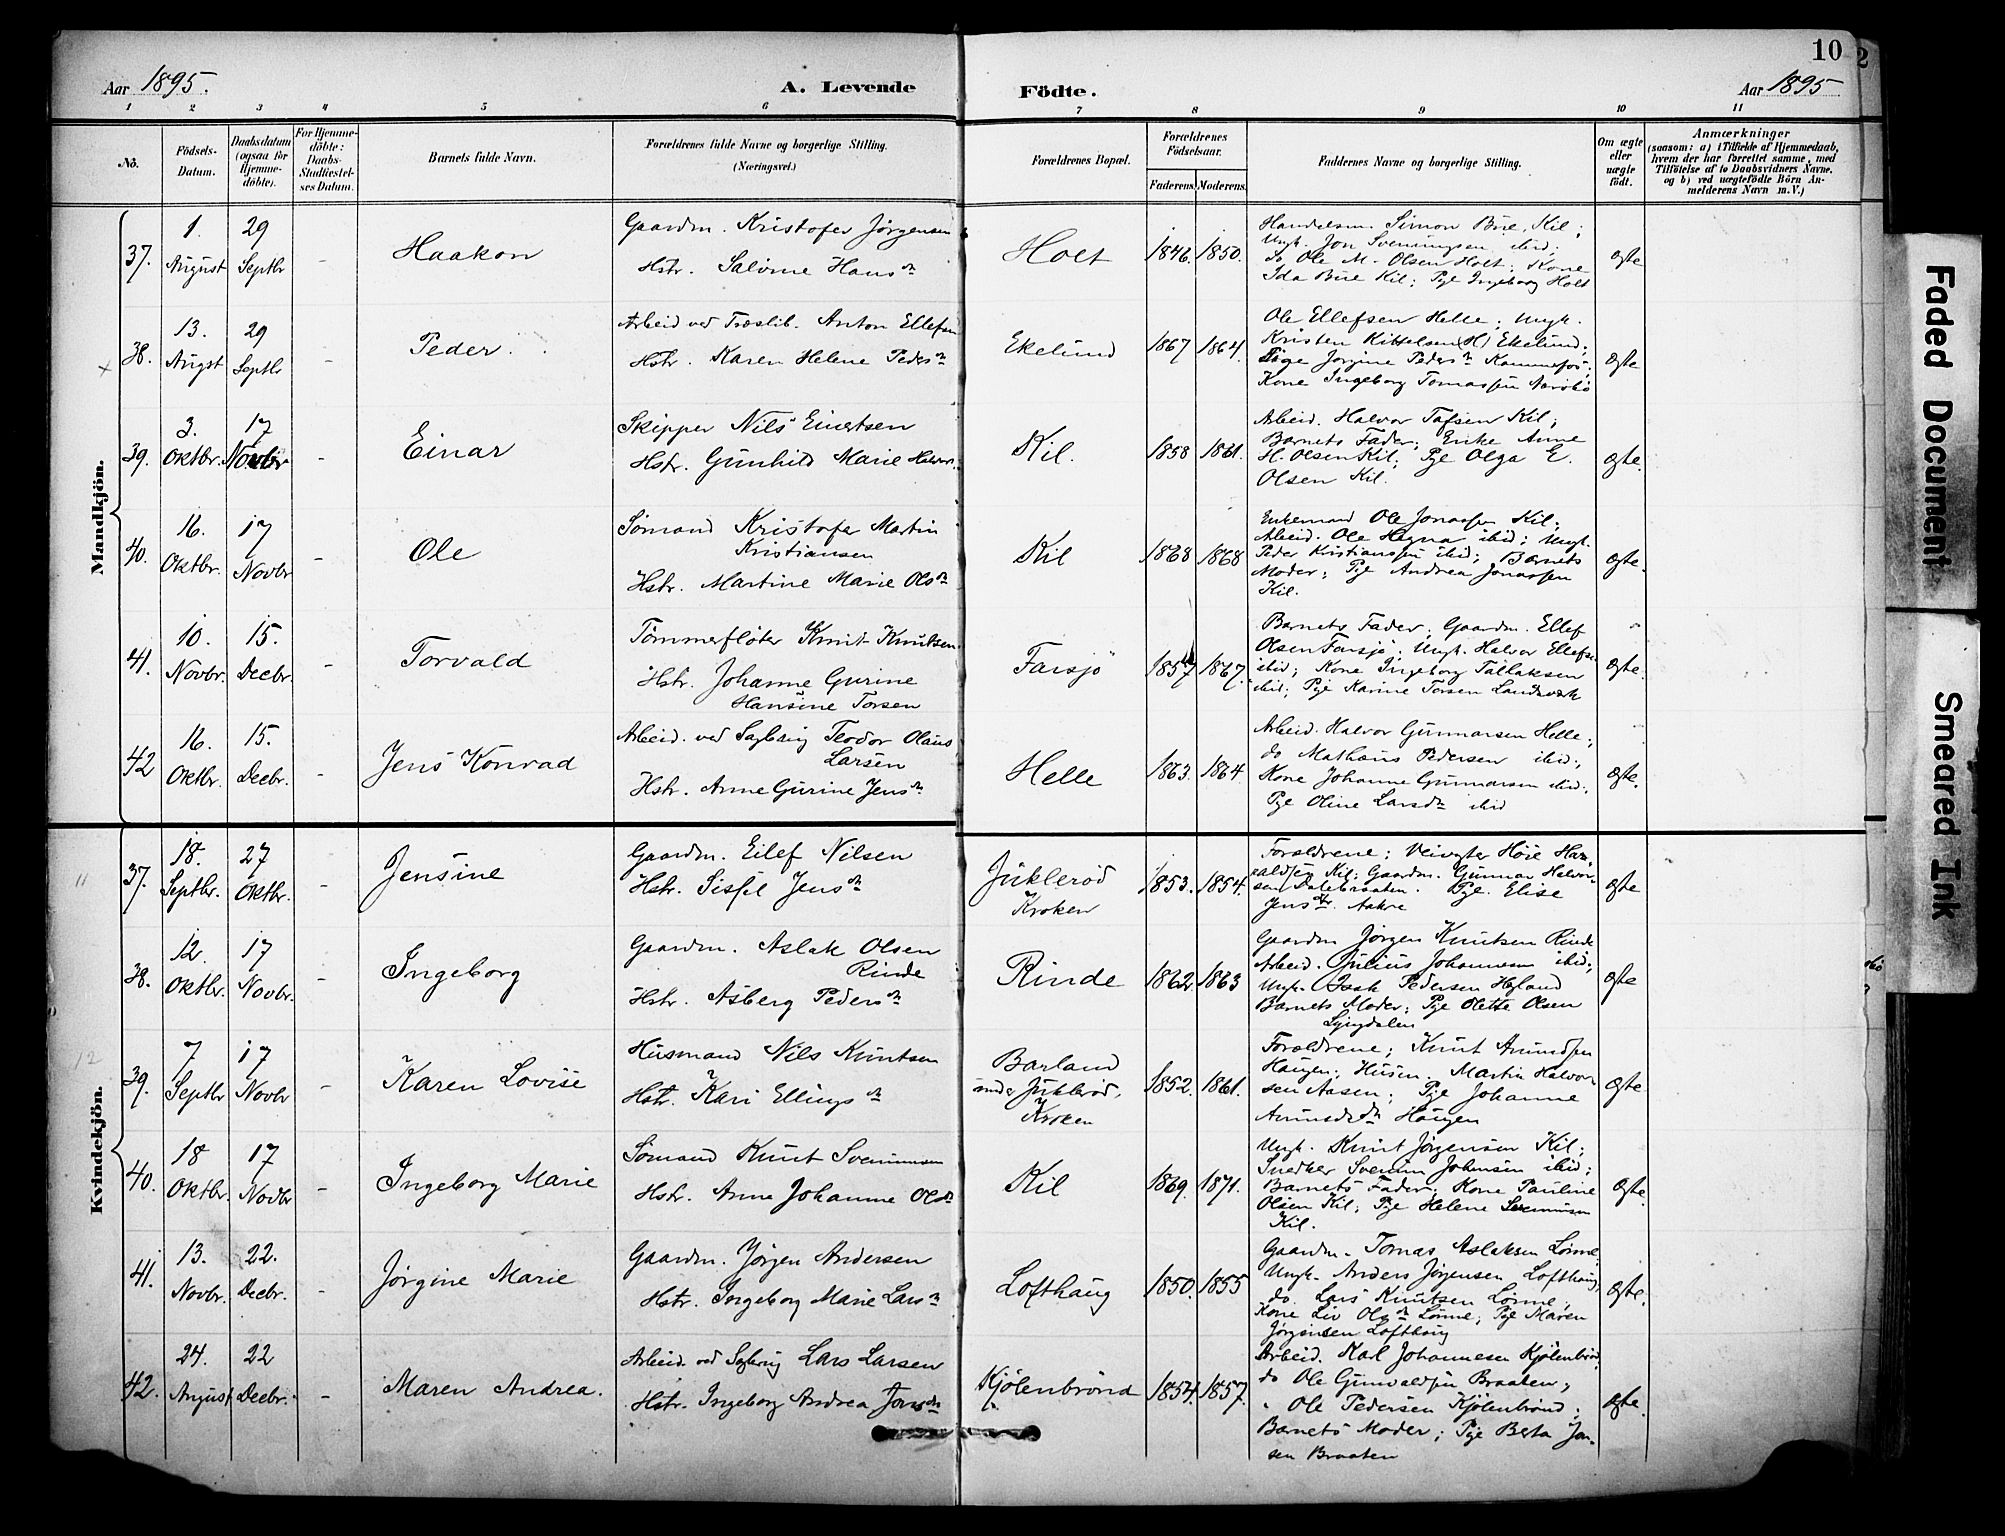 10
2
Aar 1895.
A. Levende Födte.
Aar 1895
1 2 3 4 5 6 7 8 9 10 11
No.
Födsels-
Datum.
Daabsdatum
(ogsaa for
Hjemme-
döbte).
For Hjemme-
döbte:
Daabs-
Stadfæstel-
ses Datum.
Barnets fulde Navn.
Forældrenes fulde Navne og borgerlige Stilling.
(Næringsvei.)
Forældrenes Bopæl.
Forældrenes
Födselsaar.
Faderens. Moderens.
Faddernes Navne og borgerlige Stilling.
Om ægte
eller
uægte
födt.
Anmærkninger
(saasom: a) i Tilfælde af Hjemmedaab,
hvem der har forrettet samme, med
Tilföielse af to Daabsvidners Navne.
og b) ved uægtefödte Börn An-
melderens Navn m. V.)
Mandkjön.
37.
1. August
29 Septbr
-
Haakon
Gaardm. Kristofer Jørgensen
Hstr. Salome Hansdr
Holt
1846. 1850.
Handelsm. Simon Bue, Kil;
Ungk. Jon Svenungsen ibid;
do Ole M. Olsen Holt; Kone
Ida Bue Kil; Pge Ingeborg Holt
ægte
38.
13. Augst
29 Septbr
-
Peder.
Arbeid ved Træslib. Anton Ellefsen
Hstr. Karen Helene Pedersdr
Ekelund
1867 1864.
Ole Ellefsen Helle; Ungk.
Kristen Kittelsen (H) Ekelund;
Pige Jørgine Pedersdr Kammerfos;
Kone Ingeborg Tomassen
ægte
39.
3. Oktbr.
17 Novbr
-
Einar
Skipper Nils Einertsen
Hstr. Gunhild Marie Halvors.
Kil.
1858 1861.
Arbeid. Halvor Tafsen Kil;
Barnets Fader; Enke Anne
H. Olsen Kil; Pge Olga E.
Olsen Kil.
ægte.
40.
16. Oktbr.
17 Novbr
-
Ole
Sømand Kristofer Martin
Kristiansen
Hstr. Martine Marie Olsdr
Kil
1868 1868
Enkemand Ole Jonassen Kil;
Arbeid. Ole Hegna ibid; Ungk.
Peder Kristianssen ibid; Barnets
Moder; Pge Andrea Jonassen
Kil.
ægte.
41.
10. Novbr.
15. Decbr.
-
Torvald
Tømmerfløter Knut Knutsen
Hstr. Johanne Gurine
Hansine Torsen
Farsjø
1857 1867.
Barnets Fader; Gaardm. Ellef
Olsen Farsjø; Ungk. Halvor Ellefsen
ibid; Kone Ingeborg Tallaksen
ibid; Pge Karine Torsen Landsverk
ægte.
42
16. Oktbr.
15. Decbr.
-
Jens Konrad
Arbeid. ved Sagbrug Teodor Olaus
Larsen
Hstr. Anne Gurine Jensdr
Helle
1863. 1864
Arbeid. Halvor Gunnarsen Helle;
do Mathæus Pedersen ibid;
Kone Johanne Gunnarsen ibid;
Pge Oline Larsdr ibid
ægte.
Kvindekjön.
11
37.
18. Septbr.
27 Oktbr.
-
Jensine
Gaardm. Eilef Nilsen
Hstr. Sissel Jensdr
Juklerød
Kroken
1853. 1854.
Forældrene; Veivogter Høie Har-
aldsen Kil; Gaardm. Gunnar Halvor-
sen Dalebraaten. Pge. Elise
Jensdtr. Aakre
ægte
38.
12. Oktbr.
17 Novbr.
-
Ingeborg
Gaardm. Aslak Olsen
Rinde
Hstr. Asberg Pedersdr
Rinde
1862. 1863
Gaardm Jørgen Knutsen Rinde
Arbeid. Julius Johannesen ibid;
Ungk. Isak Pedersen
Barnets Moder; Pge Olette Olsen
Lyngdalen
ægte
12
39.
7 Septbr
17 Novbr
-
Karen Lovise
Husmand Nils Knutsen
Hstr. Kari Ellingsdr
Barland
under Juklerød,
Kroken
1852. 1861.
Forældrene; Knut Amundsen
Haugen; Husm. Martin Halvor-
sen Aasen; Pge Johanne
Amundsdr Haugen
ægte
40.
18 Oktbr.
17 Novbr
-
Ingeborg Marie
Sømand Knut Svenumsen
Hstr. Anne Johanne Olsdr
Kil
1869. 1871.
Ungk. Knut Jørgensen Kil;
Snedker Svenum Johnsen ibid;
Barnets Fader; Kone Pauline
Olsen Kil; Pge Helene Svenumsen
Kil.
ægte.
41.
13. Novbr.
22. Decbr.
-
Jørgine Marie
Gaardm. Jørgen Andersen
Hstr. Ingeborg Marie Larsdr
Lofthaug
1850. 1855
Gaardm. Tomas Aslaksen Lønne;
Ungk. Anders Jørgensen Lofthaug;
do Lars Knutsen Lønne;
Kone Liv Olsdr Lønne; Pge Maren
Jørgensen Lofthaug
ægte.
42.
24. August
22 Decbr.
-
Maren Andrea.
Arbeid. ved Sagbrug Lars Larsen
Hstr. Ingeborg Andrea Jonsdr
Kjølenbrønd
1854. 1857.
Arbeid. Karl Johannesen Kjølenbrønd
do Ole Gunvaldsen Braaten;
" Ole Pedersen Kjølenbrønd;
Barnets Moder; Pge Berta Jon-
sen Braaten
ægte.
Faded Document
Smeared Ink